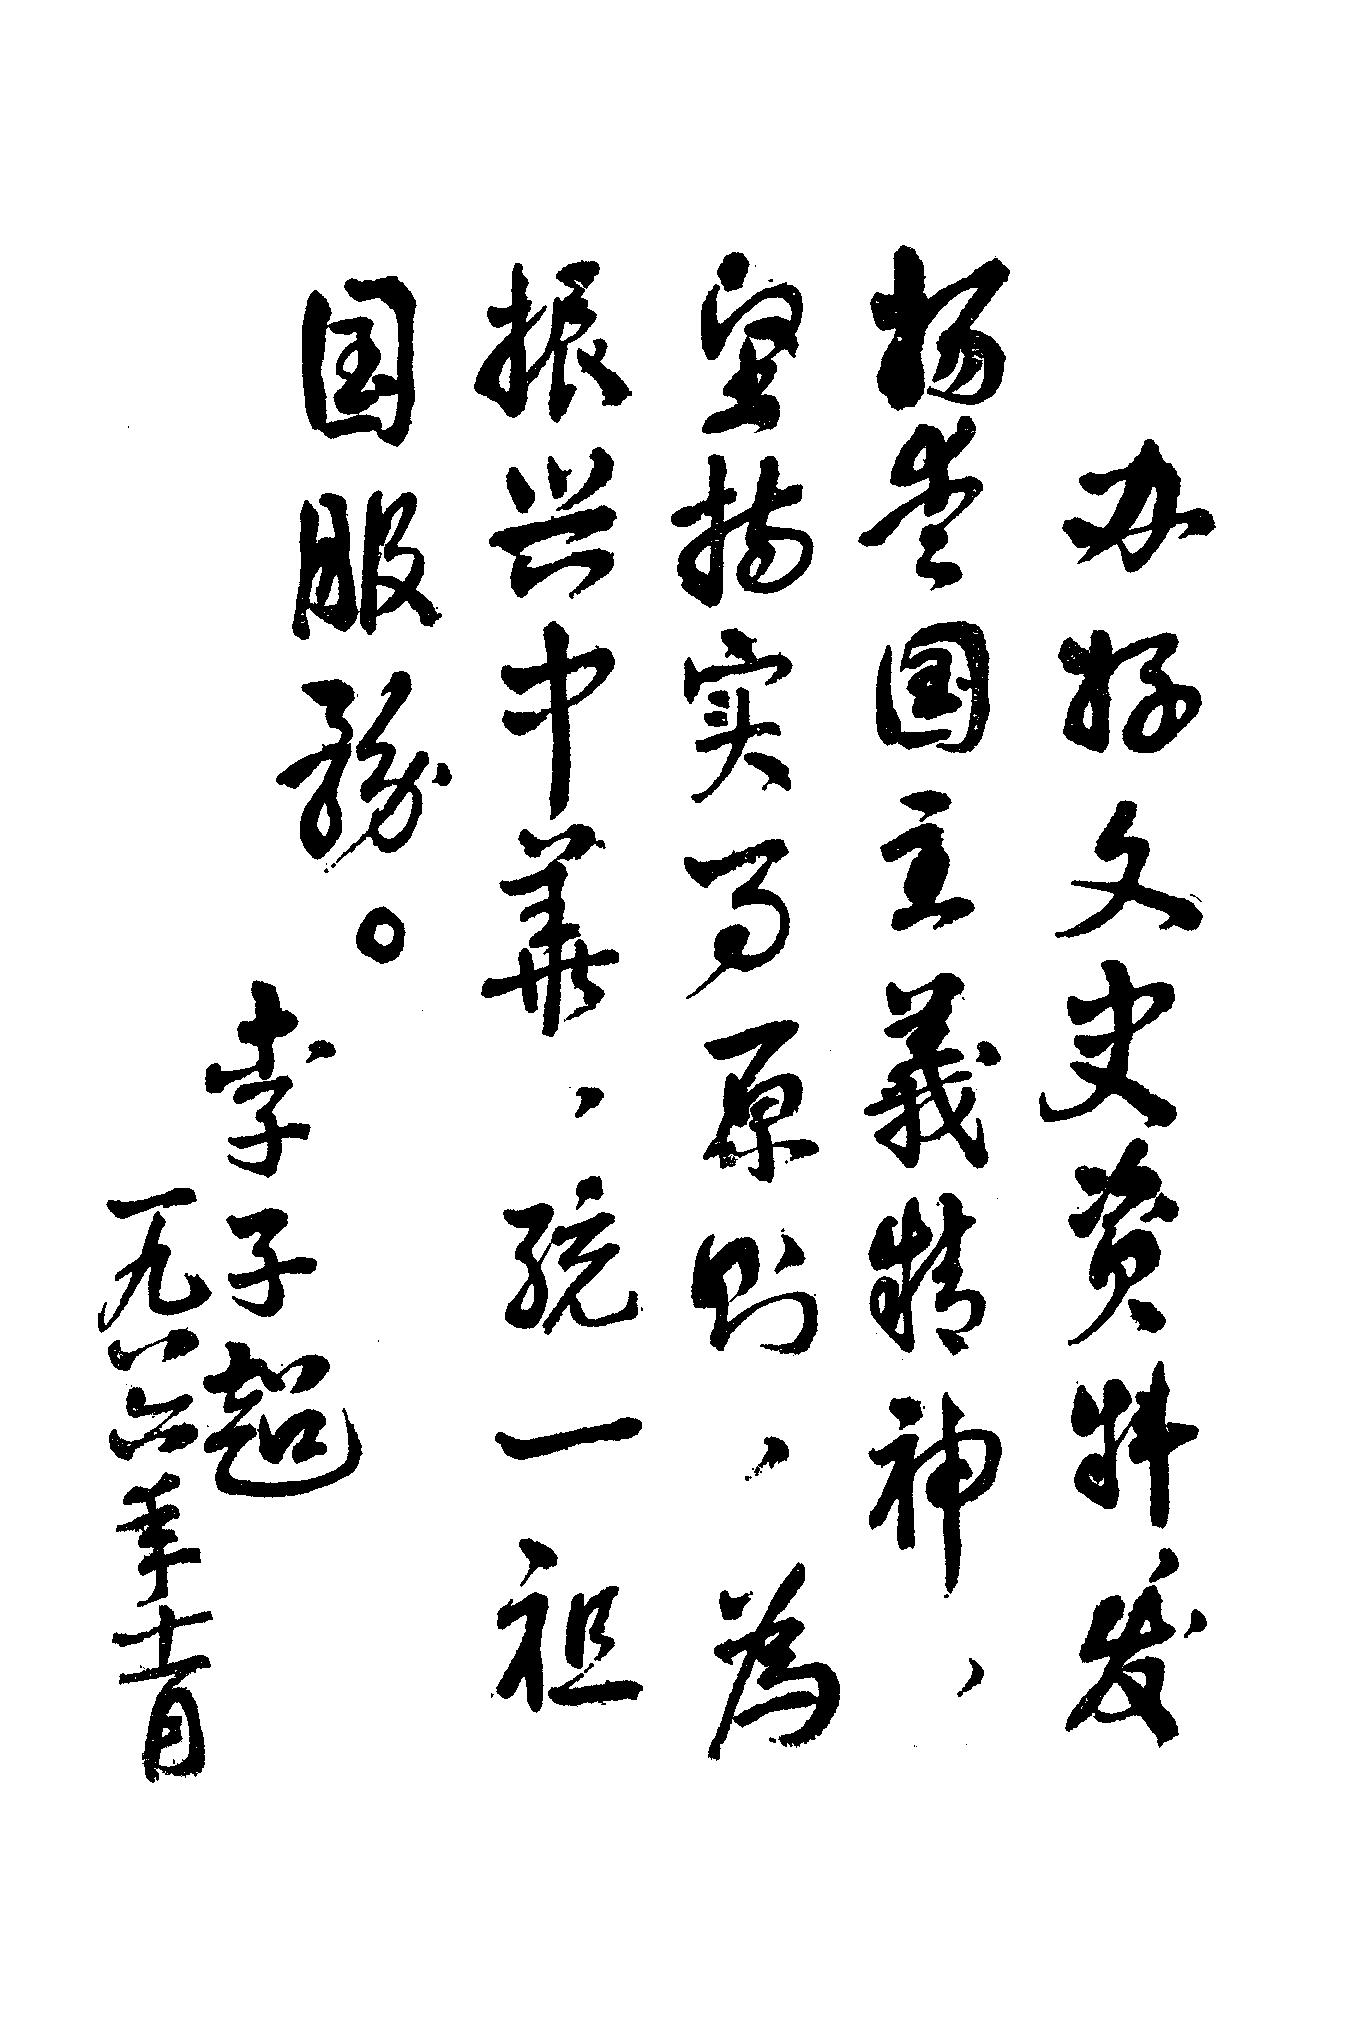 办好文史资料发
扬爱国主义精神，
坚持实事原则，為
振兴中華，統一祖
国服務。
李子超
一九八六年十一月